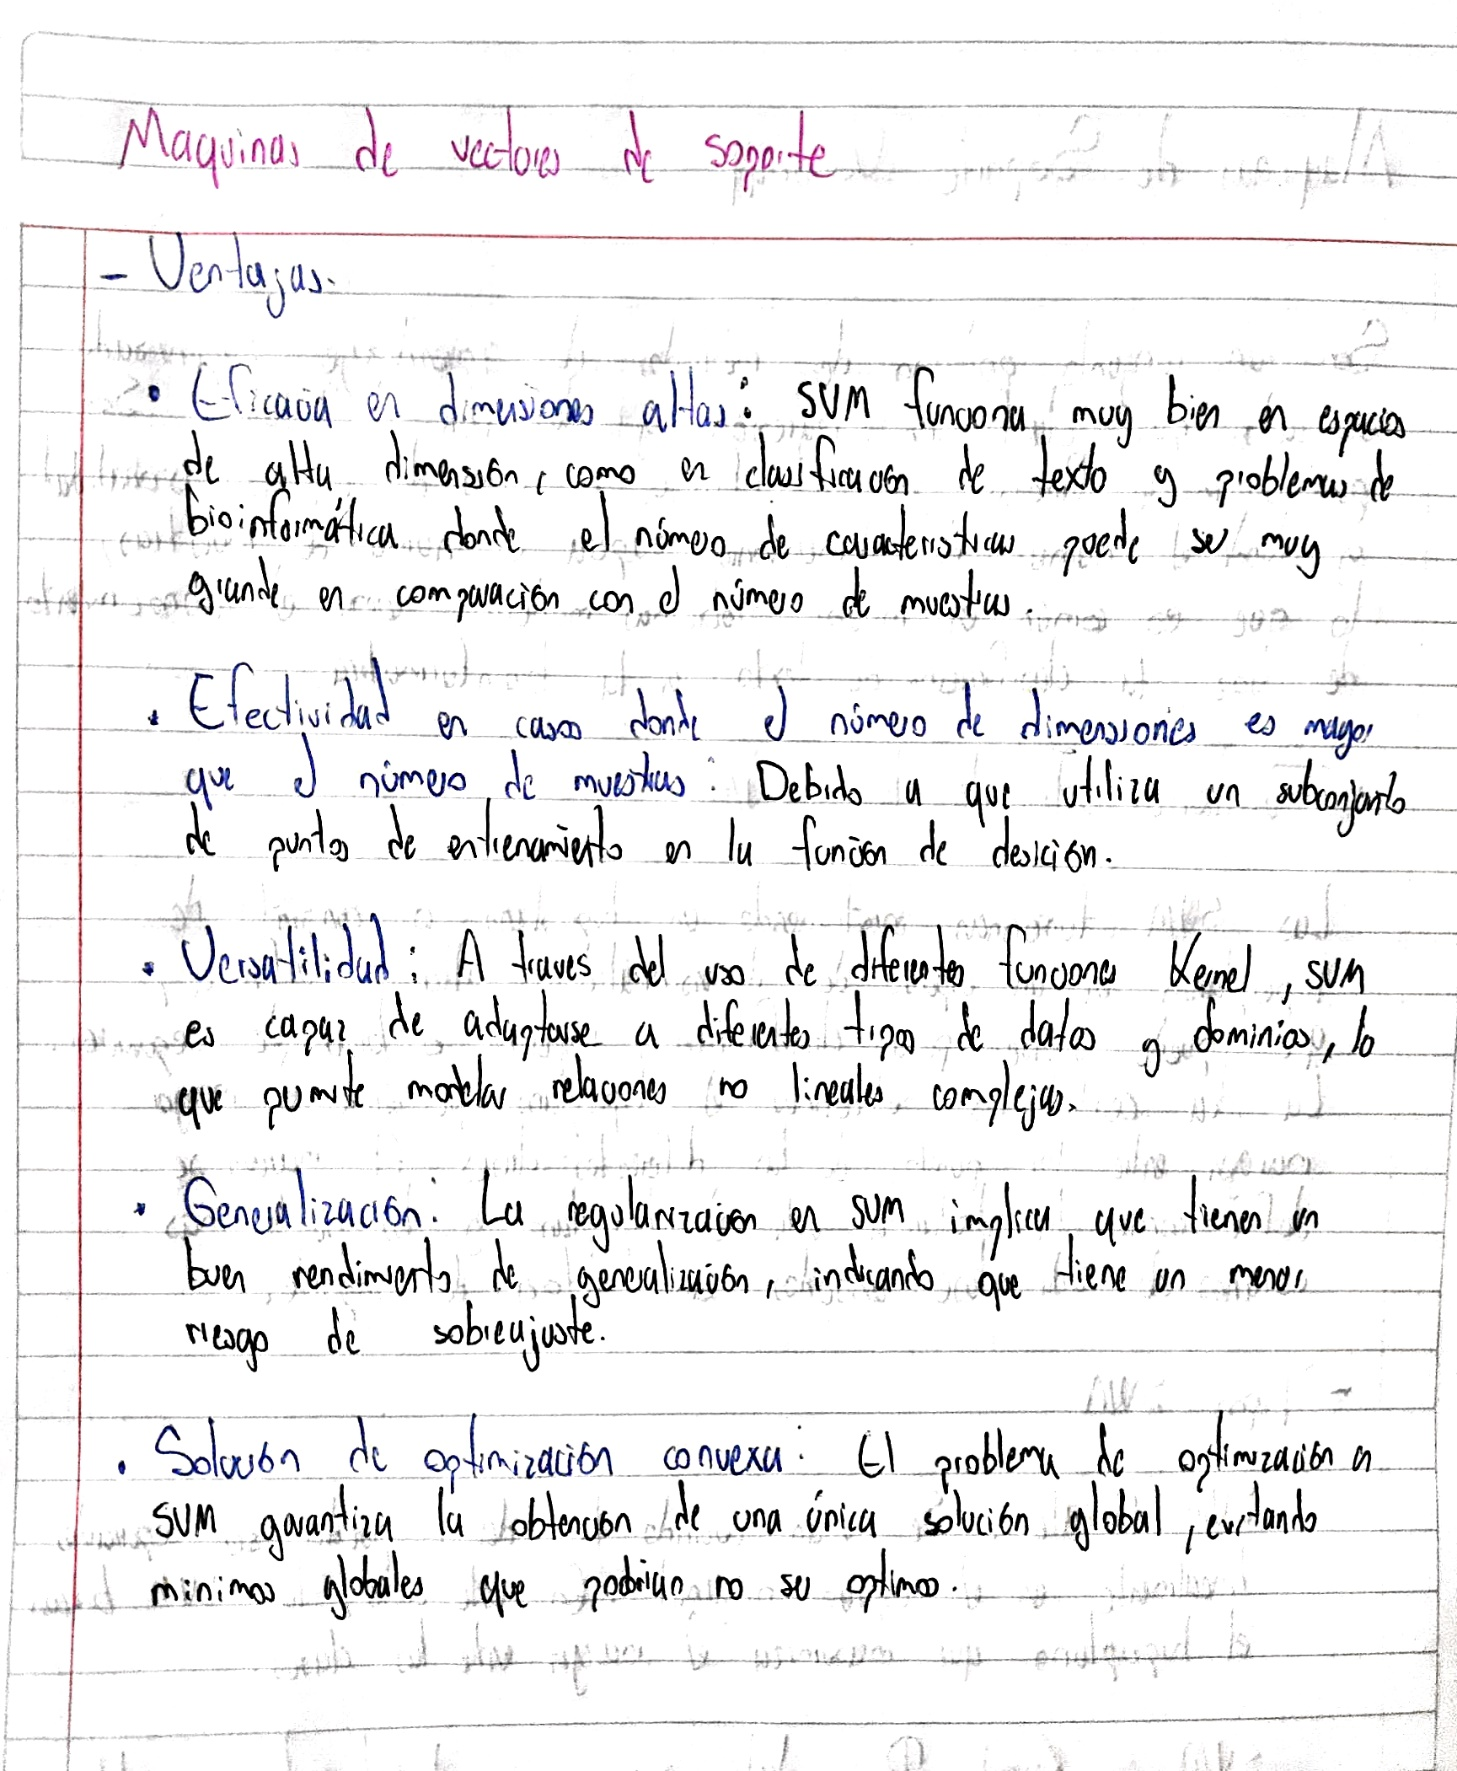 Maquinas de vectores de soporte
- Ventajas.
• Eficacia en dimensiones altas: SVM funciona muy bien en espacios
de alta dimensión, como en clasificación de texto y problemas de
bioinformática donde el número de caracteristicas puede ser muy
grande en comparación con el número de muestras.
• Efectividad en casos donde el número de dimensiones es mayor
que el número de muestras: Debido a que utiliza un subconjunto
de puntos de entrenamiento en la función de desición.
• Versatilidad: A traves del uso de diferentes funciones Kernel, SVM
es capaz de adaptarse a diferentes tipos de datos y dominios, lo
que permite modelar relaciones no lineales complejas.
• Generalización: La regularización en SVM implica que tienen un
buen rendimiento de generalización, indicando que tiene un menor
riesgo de sobreajuste.
• Solución de optimización convexa: El problema de optimización en
SVM garantiza la obtención de una única solución global, evitando
minimos globales que podrian no ser optimos.